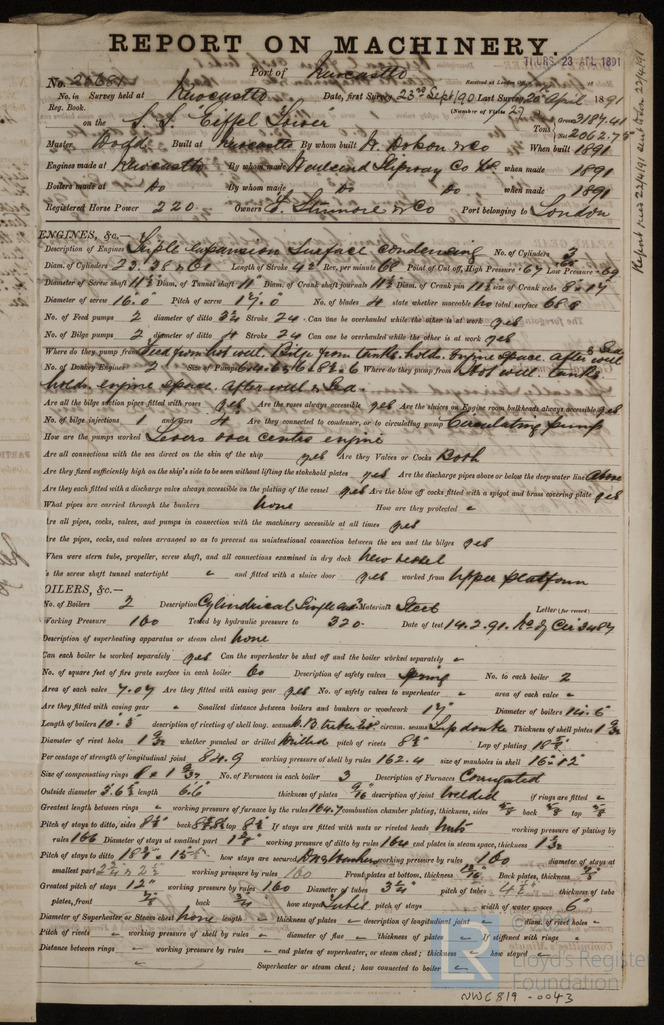 REPORT ON MACHINERY.
THURS. 23 APL 1891
Port of Newcastle
Received at London Office
No. 20681
No. in Survey held at Newcastle Date, first Survey 23rd Sept 90 Last Survey 20th April 1891
Reg. Book. (Number of Visits 27)
on the S.S. Eiffel Tower Tons Gross 3187.41 Net 2062.75
Master Dodd Built at Newcastle By whom built W. Dobson & Co When built 1891
Engines made at Newcastle By whom made Wallsend Slipway Co Ld. when made 1891
Boilers made at Do By whom made Do Do when made 1891
Registered Horse Power 220 Owners & Co Port belonging to London
ENGINES, &c.—
Description of Engines Triple expansion Surface condensing No. of Cylinders 3
Diam. of Cylinders 23. 38 & 61 Length of Stroke 42 Rev. per minute 60 Point of Cut off, High Pressure .67 Low Pressure .69
Diameter of Screw shaft 11½ Diam. of Tunnel shaft 11 Diam. of Crank shaft journals 11½ Diam. of Crank pin 11½ size of Crank webs 8 × 17
Diameter of screw 16.0 Pitch of screw 17.0 No. of blades 4 state whether moveable no total surface 68.8
No. of Feed pumps 2 diameter of ditto 3¼ Stroke 24 Can one be overhauled while the other is at work yes
No. of Bilge pumps 2 diameter of ditto 4 Stroke 24 Can one be overhauled while the other is at work yes
Where do they pump from Feed from hot well. Bilge from tanks. holds. Engine space. After well & Sea
No. of Donkey Engines 2 Size of Pumps Where do they pump from Hot well. tanks
holds. engine space. After well & Sea.
Are all the bilge suction pipes fitted with roses yes Are the roses always accessible yes Are the sluices on Engine room bulkheads always accessible yes
No. of bilge injections 1 and sizes 4 Are they connected to condenser, or to circulating pump Circulating pump
How are the pumps worked Levers over centre engine
Are all connections with the sea direct on the skin of the ship yes Are they Valves or Cocks Both
Are they fixed sufficiently high on the ship's side to be seen without lifting the stokehold plates yes Are the discharge pipes above or below the deep water line Above
Are they each fitted with a discharge valve always accessible on the plating of the vessel yes Are the blow off cocks fitted with a spigot and brass covering plate yes
What pipes are carried through the bunkers none How are they protected
Are all pipes, cocks, valves, and pumps in connection with the machinery accessible at all times yes
Are the pipes, cocks, and valves arranged so as to prevent an unintentional connection between the sea and the bilges yes
When were stern tube, propeller, screw shaft, and all connections examined in dry dock New vessel
Is the screw shaft tunnel watertight and fitted with a sluice door yes worked from Upper platform
BOILERS, &c.—
No. of Boilers 2 Description Cylindrical Single End Material Steel Letter (for record)
Working Pressure 160 Tested by hydraulic pressure to 320 Date of test 14.2.91. No of Cer 3487
Description of superheating apparatus or steam chest none
Can each boiler be worked separately yes Can the superheater be shut off and the boiler worked separately
No. of square feet of fire grate surface in each boiler 60 Description of safety valves Spring No. to each boiler 2
Area of each valve 7.07 Are they fitted with easing gear yes No. of safety valves to superheater area of each valve
Are they fitted with easing gear Smallest distance between boilers and bunkers or woodwork 17" Diameter of boilers 14.6
Length of boilers 10.3 description of riveting of shell long. seams circum. seams Lap double Thickness of shell plates 1 3/32
Diameter of rivet holes 1 3/32 whether punched or drilled drilled pitch of rivets 8½ Lap of plating 18¾
Per centage of strength of longitudinal joint 84.9 working pressure of shell by rules 162.4 size of manholes in shell 16 × 12
Size of compensating rings 8 × 1 3/32 No. of Furnaces in each boiler 3 Description of Furnaces Corrugated
Outside diameter 3.6½ length 6.6 thickness of plates 9/16 description of joint Welded if rings are fitted
Greatest length between rings working pressure of furnace by the rules 164.7 combustion chamber plating, thickness, sides 5/8 back 5/8 top 5/8
Pitch of stays to ditto, sides 8¾ back top 8½ If stays are fitted with nuts or riveted heads nuts working pressure of plating by
rules 166 Diameter of stays at smallest part working pressure of ditto by rules 164 end plates in steam space, thickness 1 3/32
Pitch of stays to ditto how stays are secured working pressure by rules 160 diameter of stays at
smallest part working pressure by rules 160 Front plates at bottom, thickness Back plates, thickness
Greatest pitch of stays 12" working pressure by rules 160 Diameter of tubes 3¼ pitch of tubes 4½ thickness of tube
plates, front back ¾ how stayed Tubes pitch of stays width of water spaces 6"
Diameter of Superheater or Steam chest none length thickness of plates description of longitudinal joint diam. of rivet holes
Pitch of rivets working pressure of shell by rules diameter of flue Thickness of plates If stiffened with rings
Distance between rings working pressure by rules end plates of superheater, or steam chest; thickness how stayed
Superheater or steam chest; how connected to boiler
Report rec'd 22/4/91 sent down 22/4/91
© 2020
Lloyd's Register
Foundation
NWC819-0043